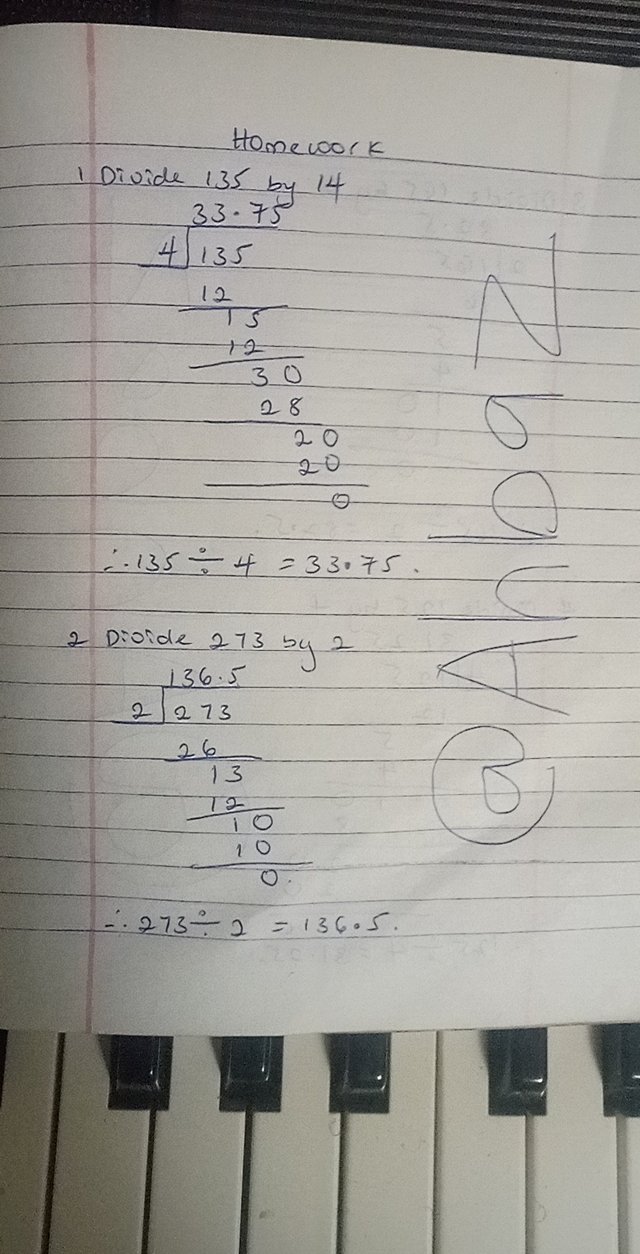 Homework
1 Divide 135 by 14
33.75
4 135
12
15
12
30
28
20
20
0
∴ 135 ÷ 4 = 33.75.
2 Divide 273 by 2
136.5
2 273
26
13
12
10
10
0.
∴ 273 ÷ 2 = 136.5.